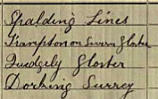 Spalding Lincs
Frampton on Severn Gloster
Quedgely Gloster
Dorking Surrey